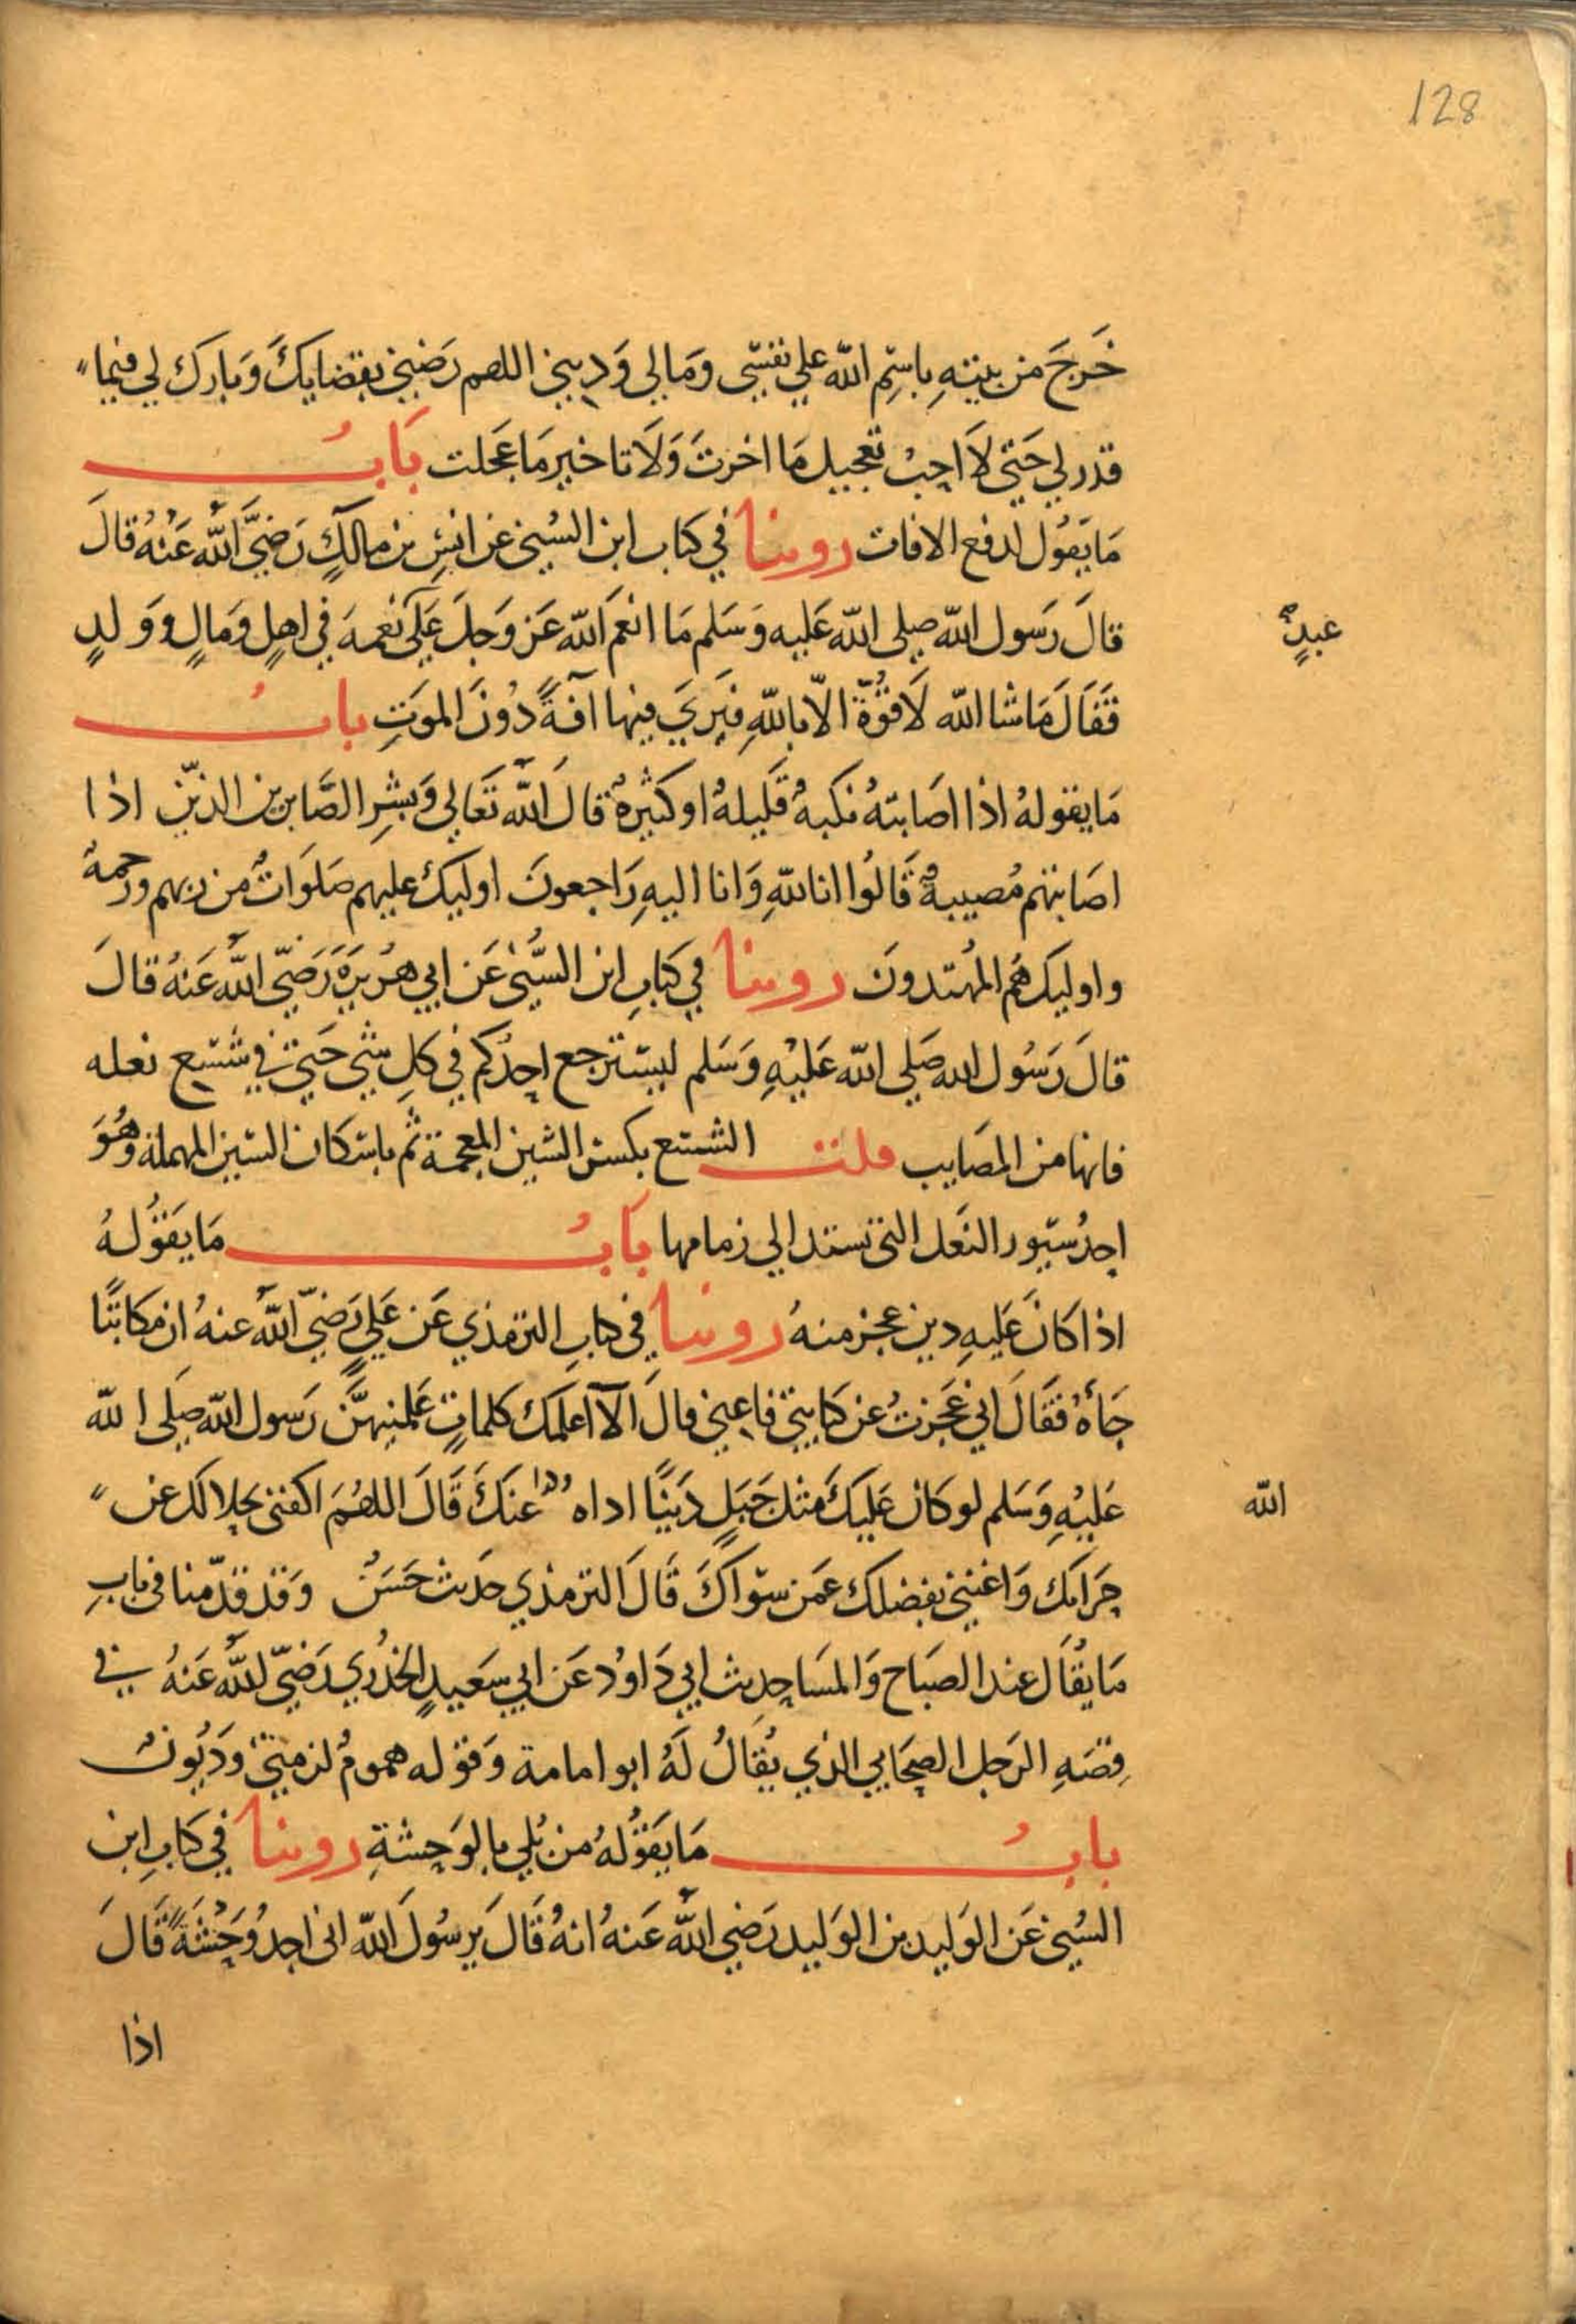 128
خَرَجَ من بيتهِ باسْمِ الله علي نفسي وَمَا لي وَدِيني اللهم رَضِّني بقضايكَ وَبارَك لي فيما
قدر لي حَتي لاَ احِبُ تعجيل مَا اخرتَ وَلاَ تاخير مَا عَجلت بَابُ
مَا يَقوُل لدفع الافات روينا في كتاب ابن السُني عن انسٍ بن مالكٍ رَضِيَّ اللهُ عَنْهُ قالَ
قالَ رَسول الله صلى الله عَليه وَسَلم مَا انعَم الله عَز وَجلَ عَلَى نعِمة في اهلٍ وَمَالٍ ووَلدٍ
عبدٍ
فَقَالَ مَا شا الله لاَ قوَُّة الاّ باللهِ فيَريَ فيها آفةً دُونَ الموَتِ بابُ
مَا يقولهُ اذا اصَابتهُ نكبهٌ قليلهٌ او كثيرهٌ قالَ اللهُ تَعَالي وَبشرِ الصَّابرين الذين اذا
اصَابتهم مُصيبهٌ قَالُوا انا للهِ وَانا اليهِ رَاجعونَ اوليكَ عليهم صَلوَاتٌ من ربهم ورحمهٌ
واوليك هُم المُهتدونَ روينا في كتابِ ابن السُّني عَن ابي هرُيرَةَ رَضِيّ اللهُ عَنهُ قالَ
قالَ رَسُول الله صَلي الله عَليْهِ وَسَلم ليسترجع احدُكم في كلِ شي حَتي في شسع نعله
فانها من المصَايب قلت الشسع بكسر الشين المعجمة ثم باسكان السين المهملة وَهُوَ
احدُ سيور النعَل التي تستد الي زمامها بَابُ مَا يَقوُلهُ
اذا كانَ عَليهِ دين عجز منهُ روينا في كتابِ الترمذي عَن عَليٍ رَضِيّ اللهُ عنهُ ان مكاتبًا
جَأهُ فقَالَ اني عَجَزتُ عن كتابتي فاعِني قالَ الآ اعلمَك كلماتٍ عَلمَنِيهنَّ رَسول الله صَلي الله
عَليْهِ وَسَلم لو كان عَليكَ مثل جَبَلٍ دَينًا اداه عنكَ قَالَ اللهُمَ اكفني بحلالك عن
الله
حَرَامك وَاغنني بفضلك عمَن سوَاكَ قَالَ الترمذي حَديث حَسَنٌ وَقد قدّمنا في بابِ
مَا يقُال عند الصبَاح وَالمسَا حديث ابي دَاوُد عَن ابي سَعيدٍ الخدُري رَضِيّ اللهُ عَنهُ في
قصَهِ الرَجل الصحَابي الذي يُقَالُ لَهُ ابو امامة وَقوله هموُمٌ لزمتني وَدُيونٌ
بابُ مَا يَقوُلهُ من بُلي بالوَحشةِ روينا في كتابِ ابن
السُني عَن الوَليد بن الوَليد رَضي اللهُ عَنهُ انهُ قَالَ يرسُولَ الله اني اجدُ وَحْشَةً قَالَ
اذا